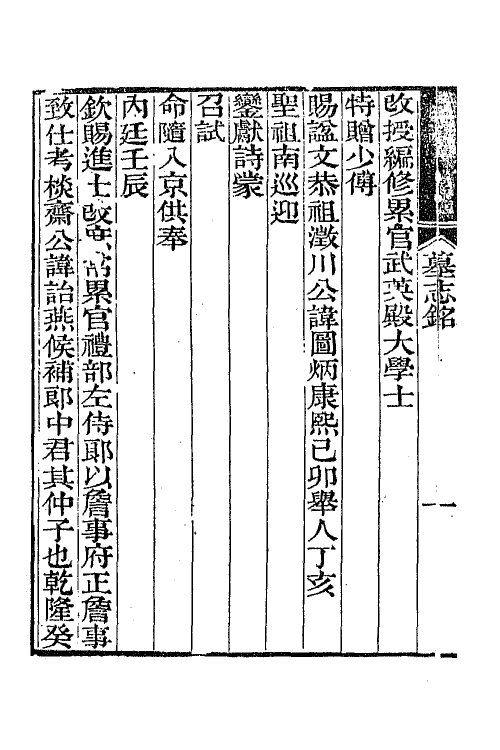 墓志銘
一
改授編修累官武英殿大學士
特贈少傅
賜諡文恭祖澂川公諱圖炳康熙己卯舉人丁亥
聖祖南巡迎
鑾獻詩蒙
召試
命隨入京供奉
內廷壬辰
欽賜進士改常累官禮部左侍郎以詹事府正詹事
致仕考棪齋公諱詒燕候補郎中君其仲子也乾隆癸